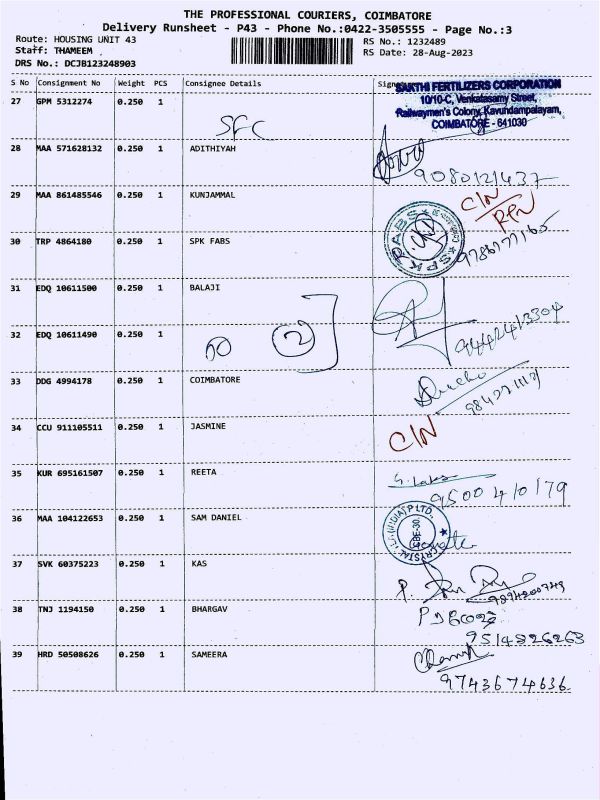 THE PROFESSIONAL COURIERS, COIMBATORE
Delivery Runsheet - P43 - Phone No.:0422-3505555 - Page No.:3
Route: HOUSING UNIT 43
RS No.: 1232489
Staff: THAMEEM .
RS Date: 28-Aug-2023
DRS No.: DCJB123248903
S No Consignment No Weight PCS Consignee Details
SAKTHI FERTILIZERS CORPORATION
10/10-C, Venkatasamy Street,
Railwaymen's Colony, Kavundampalayam,
COIMBATORE - 641030
27 GPM 5312274 0.250 1 SFC
28 MAA 571628132 0.250 1 ADITHIYAH
9080121437
29 MAA 861485546 0.250 1 KUNJAMMAL C/N
30 TRP 4864180 0.250 1 SPK FABS
SPK FABS
31 EDQ 10611500 0.250 1 BALAJI
32 EDQ 10611490 0.250 1
2
9442413304
33 DDG 4994178 0.250 1 COIMBATORE
34 CCU 911105511 0.250 1 JASMINE C/N
35 KUR 695161507 0.250 1 REETA
9500410179
36 MAA 104122653 0.250 1 SAM DANIEL
37 SVK 60375223 0.250 1 KAS
38 TNJ 1194150 0.250 1 BHARGAV
9514826263
39 HRD 50508626 0.250 1 SAMEERA
9743674636